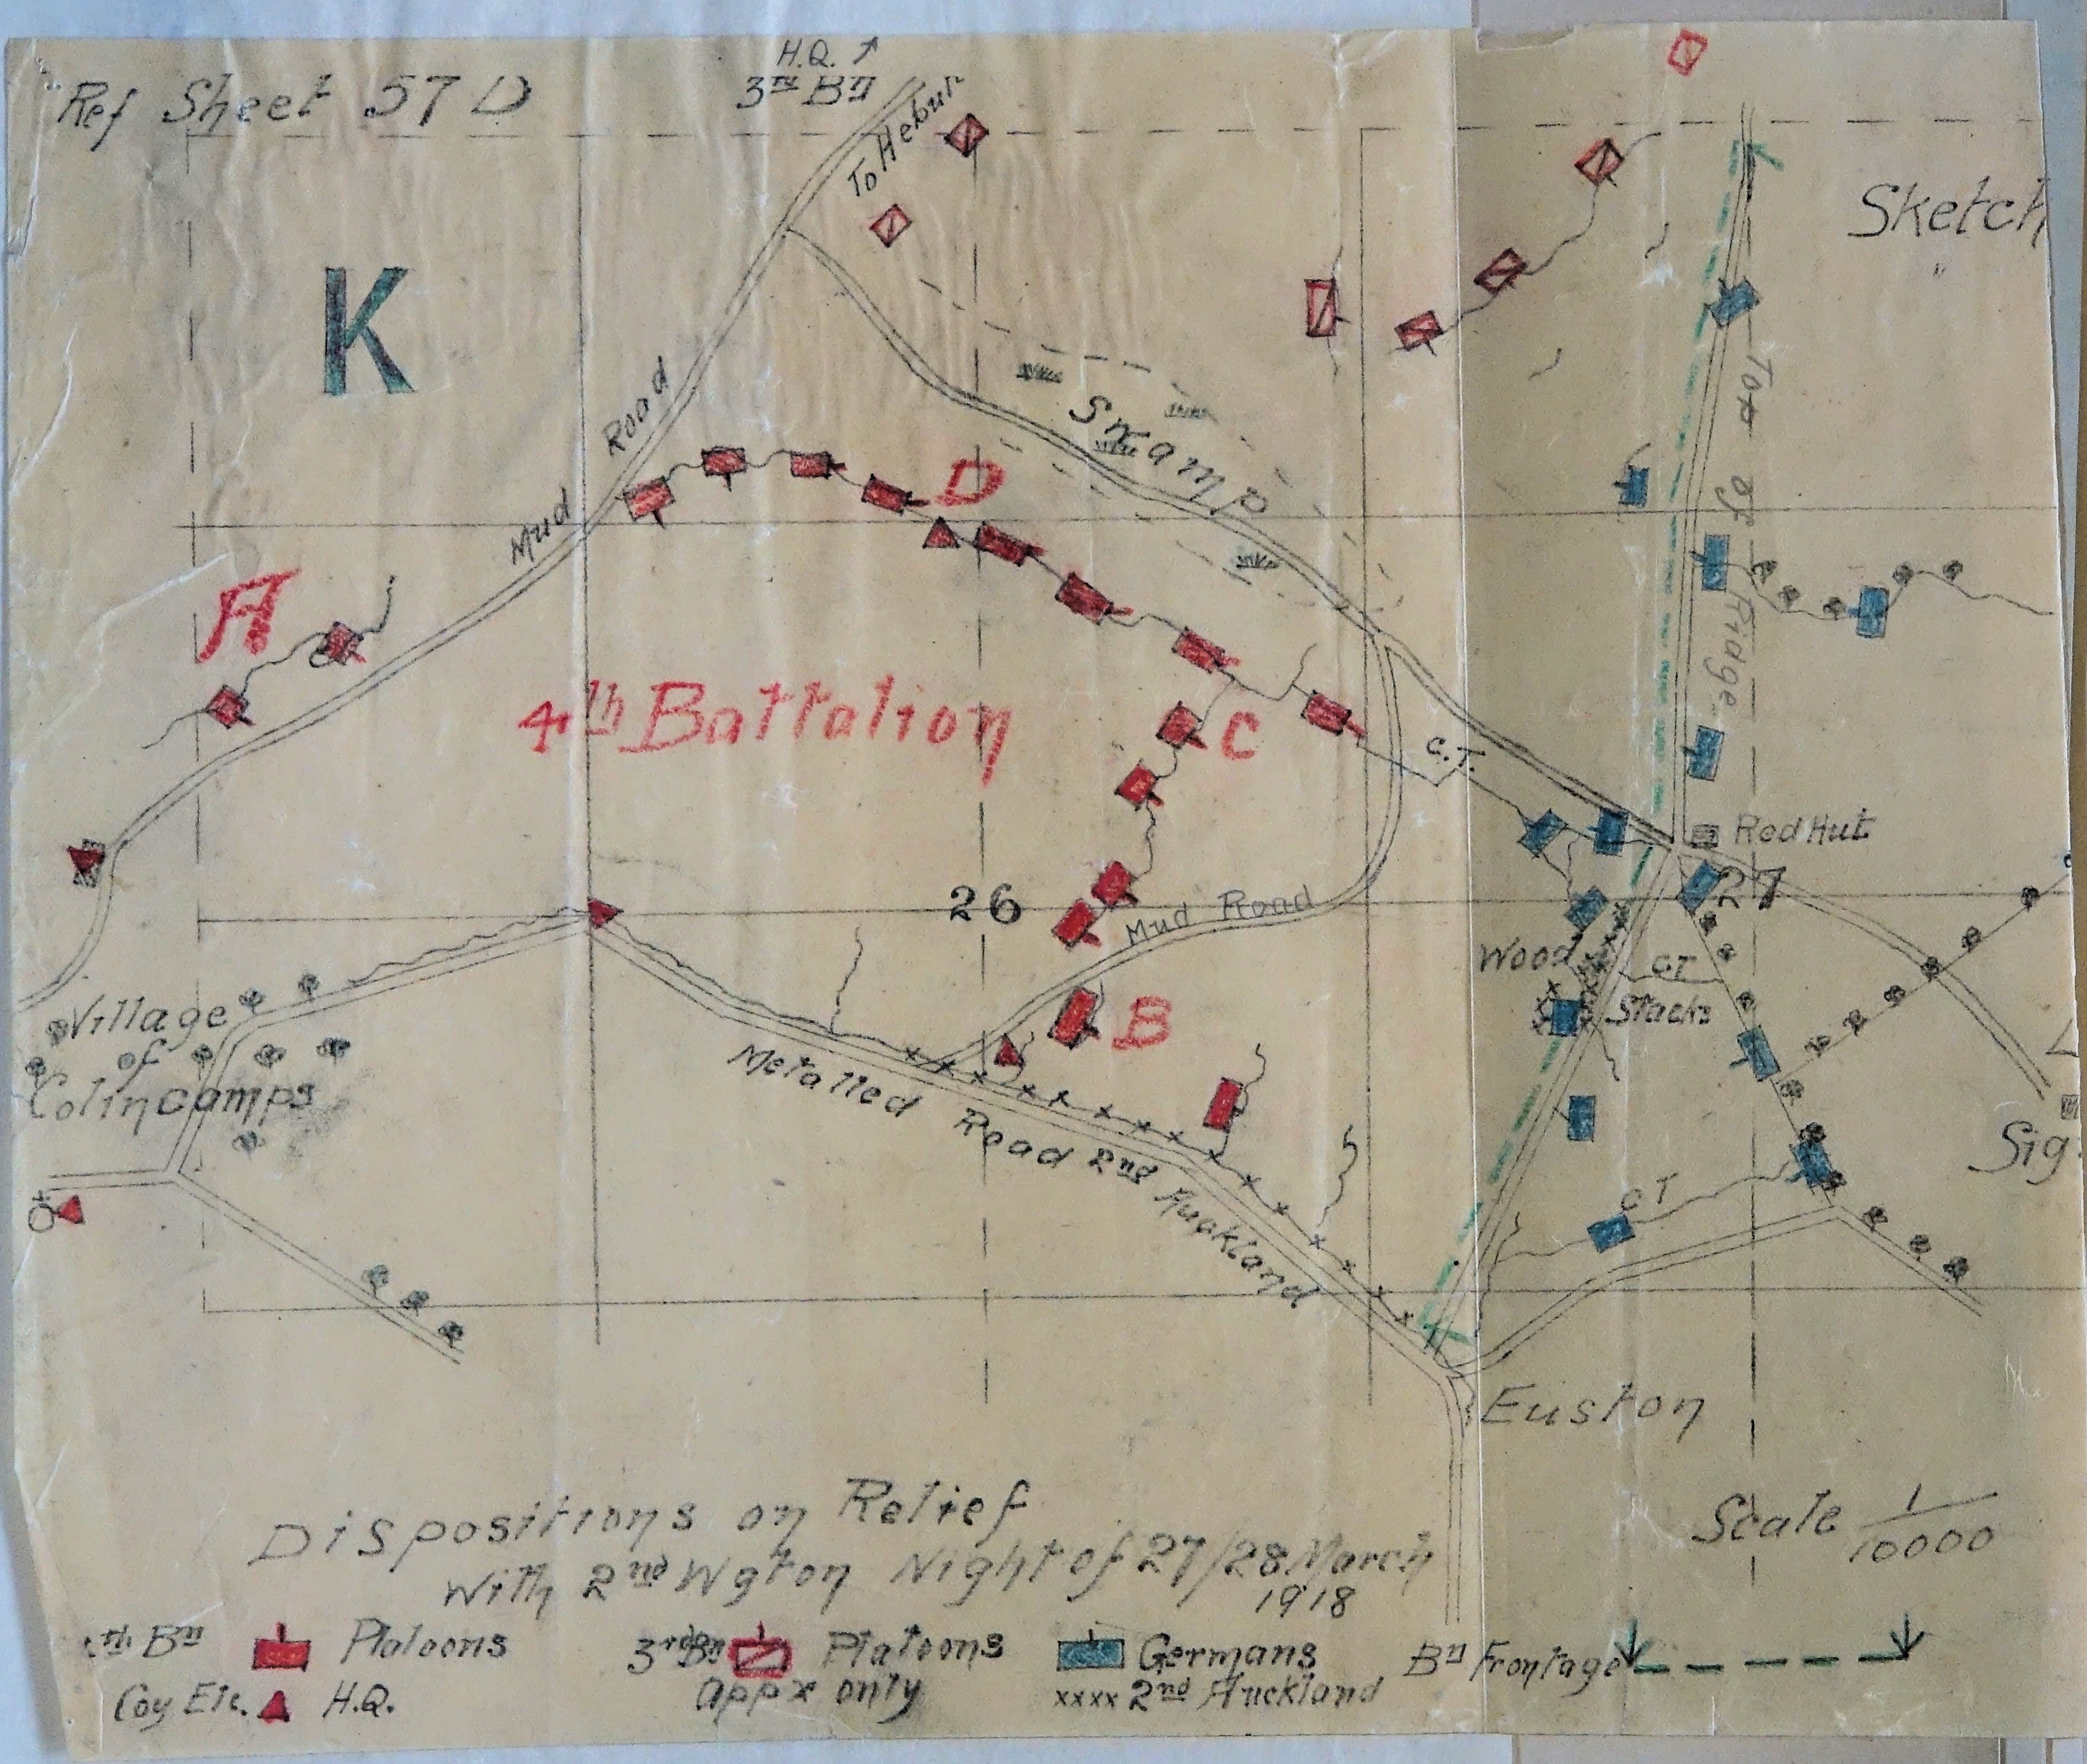 H.Q.
Ref Sheet 57 D
3rd Bn
To Hebut
Sketch
K
Road
Swamp
Top of Ridge
D
Mud
A
4th Battalion
C
C.T.
Red Hut
26
27
Mud Road
Wood
CT
Stacks
Village
of
Colincamps
B
Metalled Road 2nd Auckland
Sig.
CT
Euston
Dispositions on Relief
With 2nd Wgton Night of 27/28 March
1918
Scale 1/10000
th Bn Platoons
3rd Bn Platoons
Appx only
Germans
Bn Frontage
Coy Etc. H.Q.
xxxx 2nd Auckland